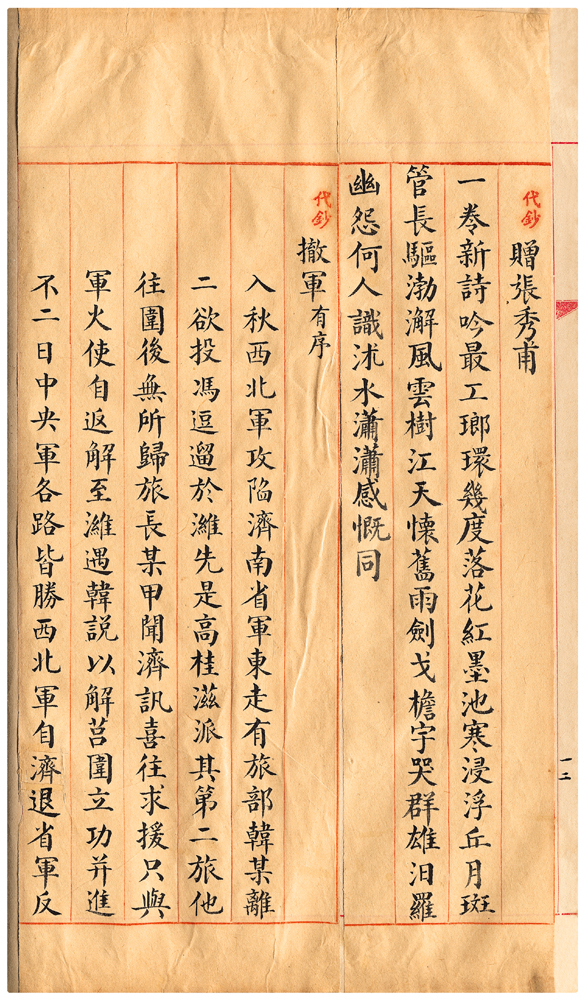 代鈔
贈張秀甫
一卷新詩吟最工瑯環幾度落花紅墨池寒浸浮丘月斑
管長驅渤澥風雲樹江天懷舊雨劍戈檐宇哭群雄汨羅
幽怨何人識沭水瀟瀟感慨同
代鈔
撤軍有序
入秋西北軍攻陷濟南省軍東走有旅部韓某離
二欲投馮逗遛於濰先是高桂滋派其第二旅他
往圍後無所歸旅長某甲聞濟訊喜往求援只與
軍火使自返解至濰遇韓説以解莒圍立功并進
不二日中央軍各路皆勝西北軍自濟退省軍反
一二